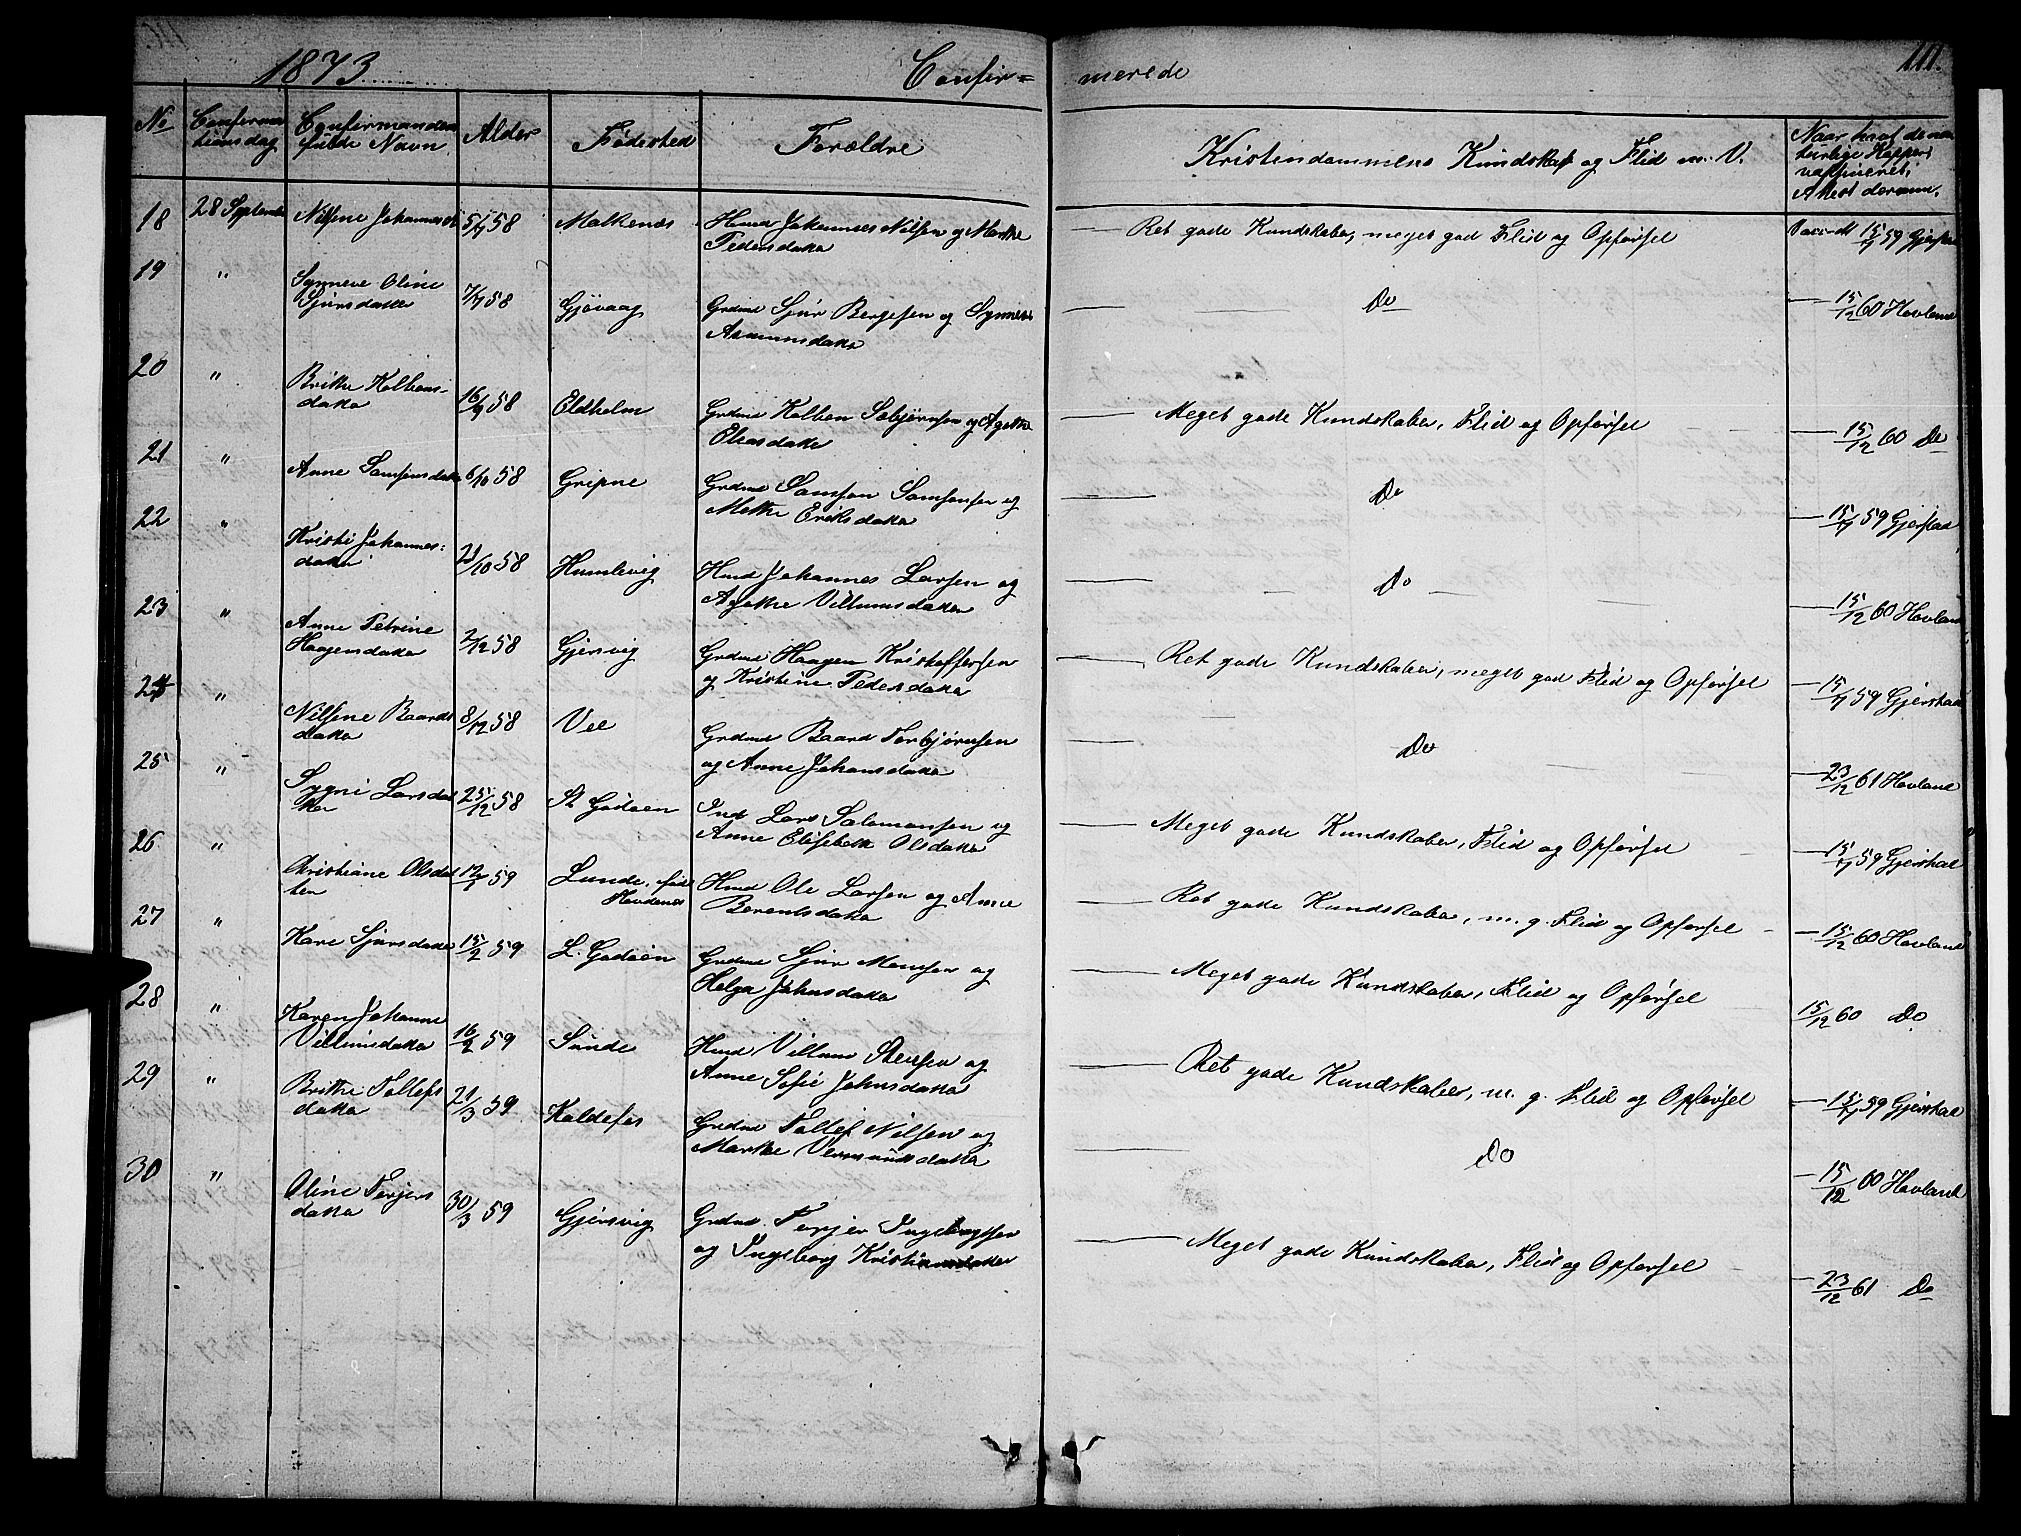 1873. Confir= merede 111.
No
Confirma
tionsdag
Confirmandens
fulde Navn
Alder
Fødested
Forældre
Kristendommens Kundskab og Flid m. V.
Naar hvor de na
turlige Kopper
vaksineret,
Attest derom.
18 28 September Nilsine Johannesd 5/7 58 Malkenes Husmd Johannes Nilsen og Marthe
Pedersdatter
Ret gode Kundskaber, meget god Flid og Opførsel
Vaccindt 15/7 59 Gjerstad
19 " Synneve Oline
Sjursdatter
7/7 58 Gjøvaag Grdmd Sjur Bergesen og Synneve
Aamunsdatter
Do
15/12 60 Hovland
20 " Brithe Kolbens-
datter
16/9 58 Eldholm Grdmd Kolben Sebjørnsen og Agathe
Eliasdatter
Meget gode Kundskaber, Flid og Opførsel
15/12 60 Do
21 " Anne Samsonsdatter 6/10 58 Gripne Grdmd Samson Samsonsen og
Mette Eriksdatter
Do
15/7 59 Gjerstad
22 " Kristi Johannes-
datter
21/10 58 Humlevig Hmd Johannes Larsen og
Agathe Villumsdatter
Do
15/12 60 Hovland
23 " Anne Petrine
Haagensdatter
2/12 58 Gjersvig Grdmd Haagen Kristoffersen
og Kristine Pedersdatter
Ret gode Kundskaber, meget god Flid og Opførsel
15/7 59 Gjerstad
24 " Nilsine Baards
datter
8/12 58 Vee Grdmd Baard Torbjørnsen
og Anne Johansdatter
Do
23/12 61 Hovland
25 " Sygni Larsdat
ter
25/12 58 St Godøen Ind Lars Salamonsen og
Anne Elisebeth Olsdatter
Meget gode Kundskaber, Flid og Opførsel
15/7 59 Gjerstad
26 " Christiane Olsdat
ter
59 Lunde, fød
Hovdenes
Hmd Ole Larsen og Anne
Berentsdatter
Ret gode Kundskaber, m. g. Flid og Opførsel
15/12 60 Hovland
27 " Kari Sjursdatter 15/2 59 L. Godøen Grdmd Sjur Monsen og
Helga Johnsdatter
Meget gode Kundskaber, Flid og Opførsel
15/12 60 Do
28 " Karen Johanne
Villumsdatter
16/2 59 Sunde Hmd Villum Stensen og
Anne Sofie Johnsdatter
Ret gode Kundskaber, m. g. Flid og Opførsel
15/7 59 Gjerstad
29 " Brithe Tollefs
datter
21/3 59 Koldefos Grdmd Tollef Nilsen og
Marthe Vermundsdatter
Do
15/12 60 Hovland
30 " Oline Terjers
datter
30/3 59 Gjersvig Grdmd Terjer Ingebrigtsen
og Ingeborg Kristiansdatter
Meget gode Kundskaber, Flid og Opførsel
23/12 61 Do